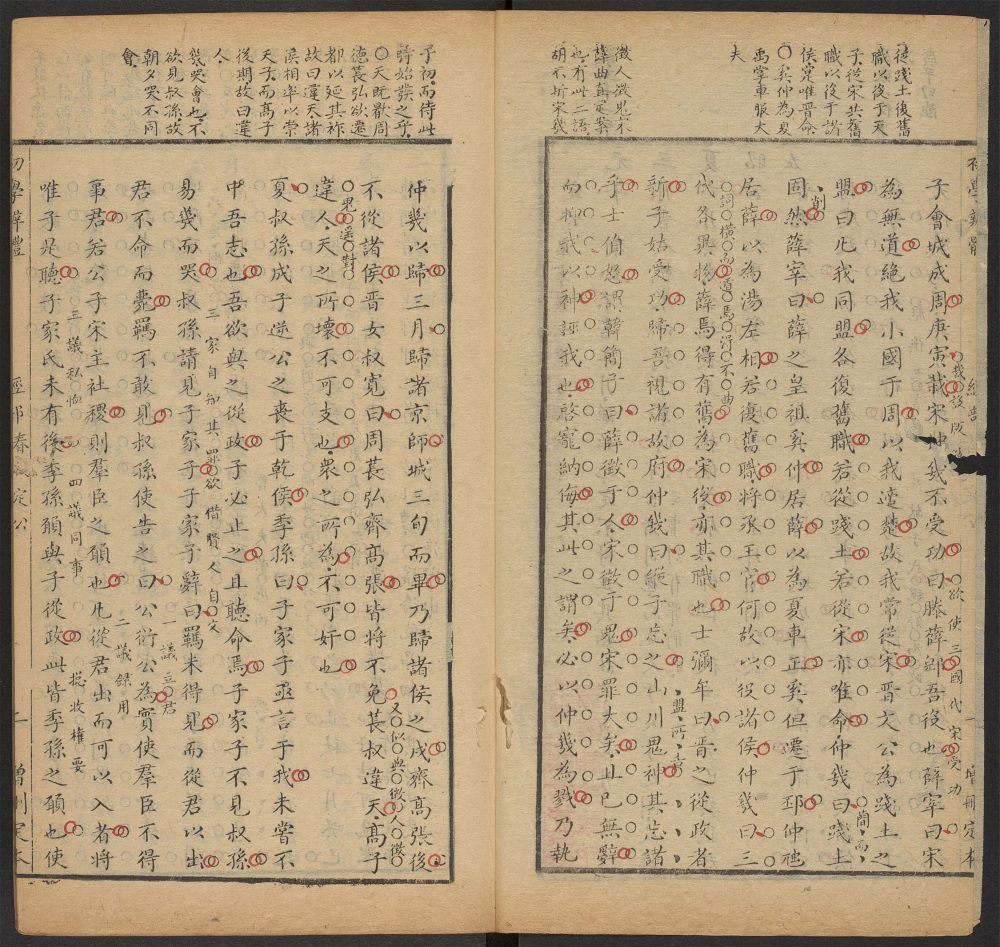 從踐土後舊
職以後于天
子從宋共舊
職以後于諸
侯穿唯晉命
矣仲為夏
禹掌車服大
夫
徵人徵鬼宋
薛曲直定案
也有此二語
胡不折宋幾
子會城成周庚寅栽宋仲幾不受功曰滕薛郳吾役也薛宰曰宋
欲使三國代宋受功
為無道絕我小國于周以我適楚故我常從宋晉文公為踐土之
盟曰凡我同盟各復舊職若從踐土若從宋亦唯命仲幾曰踐土
固然薛宰曰薛之皇祖奚仲居薛以為夏車正奚仲遷于邳仲虺
居薛以為湯左相若復舊職將承王官何故以役諸侯仲幾曰三
代各異物薛焉得有舊為宋役亦其職也士彌牟曰晉之從政者
新子姑受功歸吾視諸故府仲幾曰縱子忘之山川鬼神其忘諸
乎士伯怒謂韓簡子曰薛徵于人宋徵于鬼宋罪大矣且已無辭
而抑我以神誣我也啓寵納侮其此之謂矣必以仲幾為戮乃執
增冊定本
予初而待此
時始發之乎
天既厭周
德萇弘欲遷
都以延其祚
故曰違天諸
侯相率以崇
天子而高子
後期故曰違
人
幾哭會也不
欲見叔孫故
朝夕哭不同
會
仲幾以歸三月歸諸京師城三旬而畢乃歸諸侯之戍齊高張後
又似與徵人徵
不從諸侯晉女叔寬曰周萇弘齊高張皆將不免萇叔違天高子
鬼遥對
違人天之所壞不可支也眾之所為不可奸也
夏叔孫成子逆公之喪于乾侯季孫曰子家子亟言于我未嘗不
中吾志也吾欲與之從政子必止之且聽命焉子家子不見叔孫
三家自知其罪欲借賢人自文
易幾而哭叔孫請見子家子子家子辭曰羈未得見而從君以出
君不命而薨羈不敢見叔孫使告之曰公衍公為實使羣臣不得
一議立君
事君若公子宋主社稷則羣臣之願也凡從君出而可以入者將
二議錄用
唯子是聽子家氏未有後季孫願與子從政此皆季孫之願也使
三議私恤
四議同事
總收權要